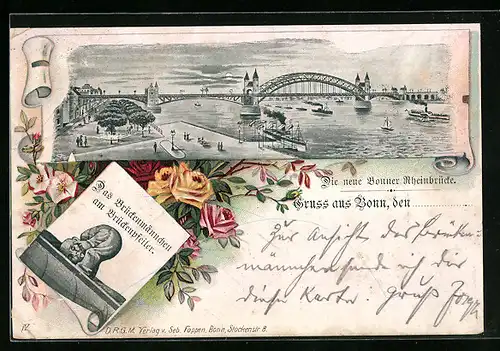 Die neue Bonner Rheinbrücke.
Gruss aus Bonn, den
Das Brückenmännchen
am Brückenpfeiler.
Zur Ansicht des Brücken-
männchen sende ich dir
diese Karte. Gruß
IV.
D.R.G.M. Verlag v. Seb. Foppen, Bonn, Stockenstr. 8.